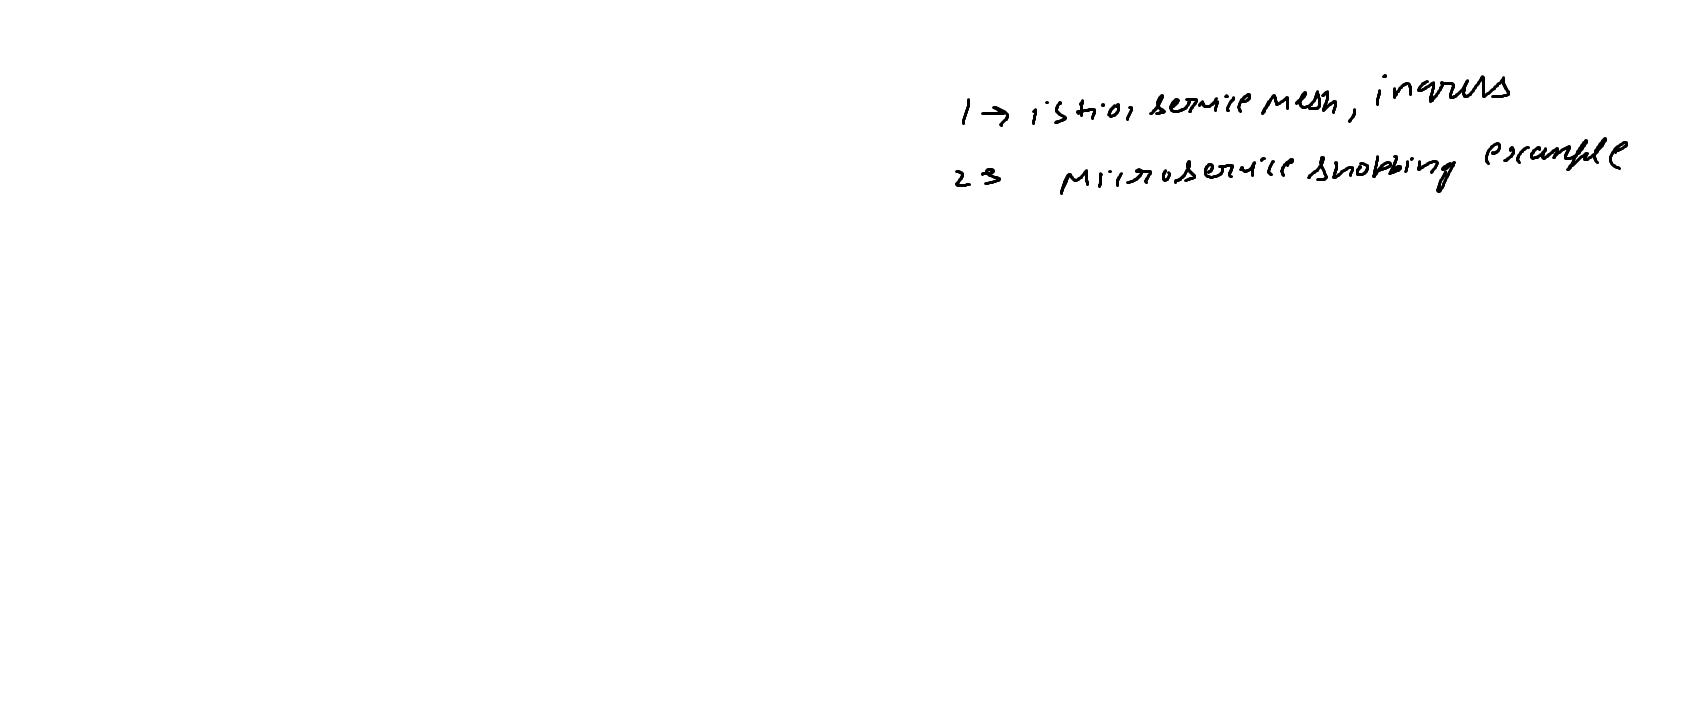 1 → istio, service mesh, ingress
2 → microservice shopping example